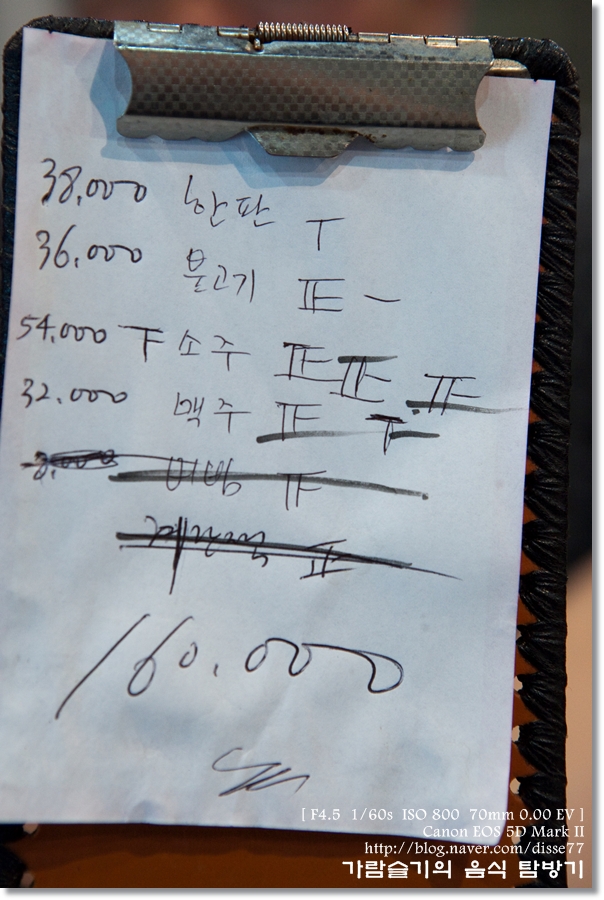 38,000 한판
36,000 불고기
54,000 소주
32,000 맥주
160,000
[ F4.5 1/60s ISO 800 70mm 0.00 EV ]
Canon EOS 5D Mark II
http://blog.naver.com/disse77
가람슬기의 음식 탐방기